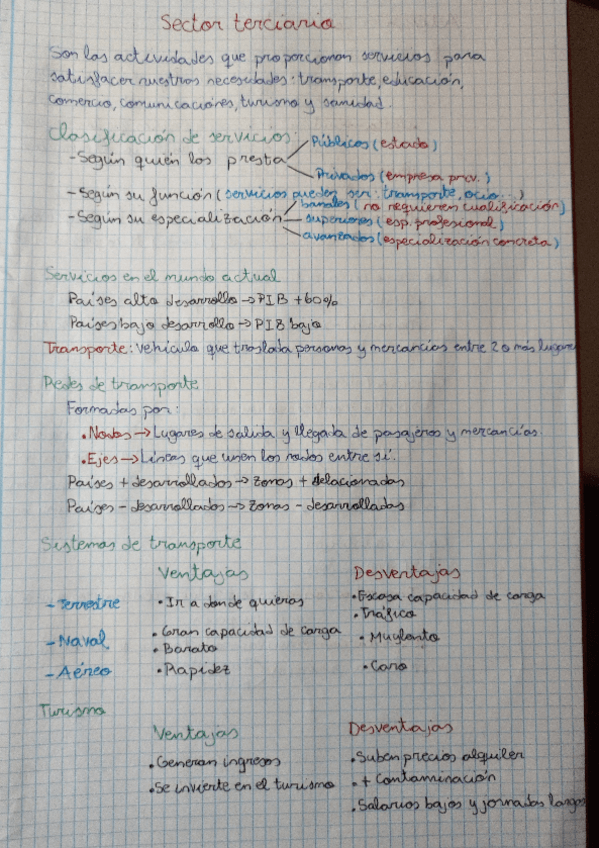 Sector terciario
Son las actividades que proporcionan servicios para
satisfacer nuestras necesidades: transporte, educación,
comercio, comunicaciones, turismo y sanidad.
Clasificación de servicios:
-Según quién los presta
Públicos (estado)
Privados (empresa priv.)
-Según su función (servicios pueden ser: transporte, ocio...)
-Según su especialización
banales (no requieren cualificación)
superiores (esp. profesional)
avanzados (especialización concreta)
Servicios en el mundo actual
Países alto desarrollo → PIB +60%
Países bajo desarrollo → PIB bajo
Transporte: vehículo que traslada personas y mercancías entre 2 o más lugares
Redes de transporte
Formadas por:
• Nodos → Lugares de salida y llegada de pasajeros y mercancías.
• Ejes → Líneas que unen los nodos entre sí.
Países + desarrollados → zonas + relacionadas
Países - desarrollados → zonas - desarrolladas
Sistemas de transporte
Ventajas Desventajas
- Terrestre • Ir a donde quieras • Escasa capacidad de carga
• Tráfico
- Naval • Gran capacidad de carga • Muy lento
• Barato
- Aéreo • Rapidez • Caro
Turismo
Ventajas Desventajas
• Generan ingresos • Suben precios alquiler
• Se invierte en el turismo • + contaminación
• Salarios bajos y jornadas largas